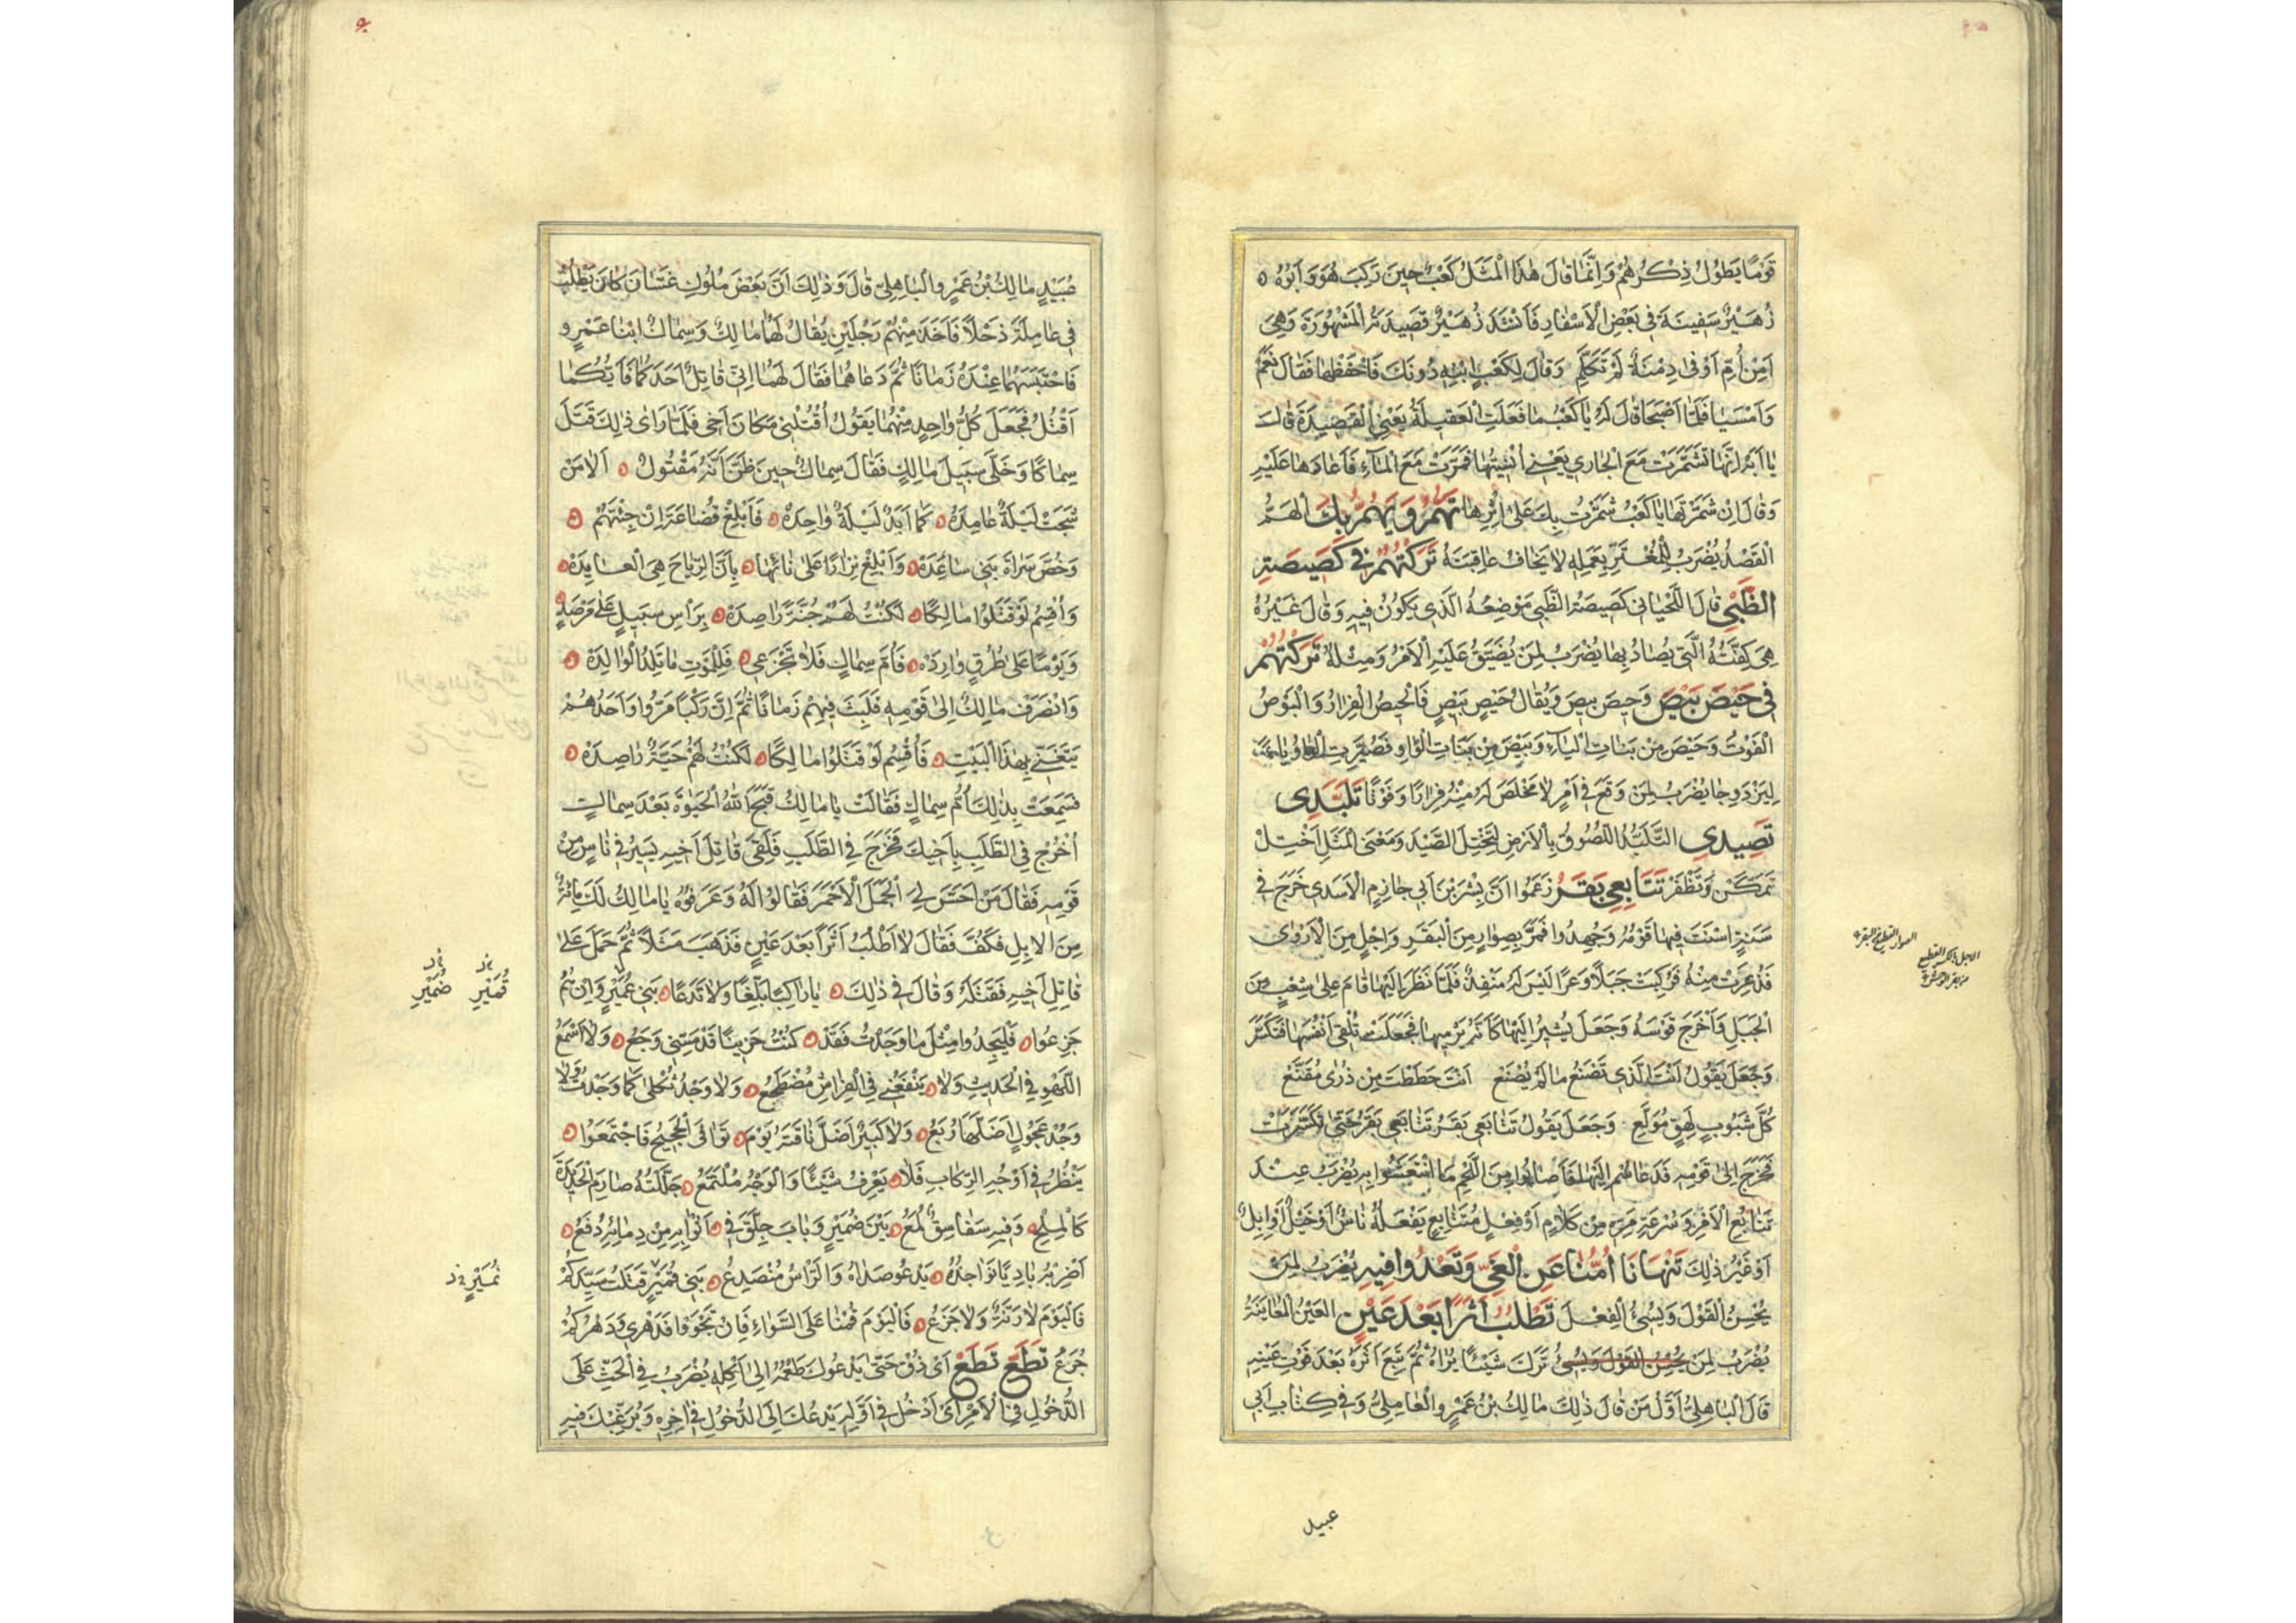 قَوْمًا يَطُولُ ذِكْرُهُمْ وَاِنَّمَا قَالَ هٰذَا الْمَثَلَ كَعْبٌ حِينَ رَكِبَ هُوَ وَاَبُوهُ
زُهَيْرٌ سَفِينَةً فِي بَعْضِ الْاَسْفَارِ فَاَنْشَدَ زُهَيْرٌ قَصِيدَتَهُ الْمَشْهُورَةَ وَهِيَ
اَمِنْ اُمِّ اَوْفٰى دِمْنَةٌ لَمْ تَكَلَّمِ وَقَالَ لِكَعْبٍ ابْنِهِ دُونَكَ فَاحْفَظْهَا فَقَالَ نَعَمْ
وَاَمْسَيَا فَلَمَّا اَصْبَحَا قَالَ لَهُ يَا كَعْبُ مَا فَعَلَتِ الْعَقِيلَةُ يَعْنِي الْقَصِيدَةَ قَالَ
يَا اَبَهْ اِنَّهَا تَشَمَّرَتْ مَعَ الْجَارِي يَعْنِي اُنْسِيتُهَا فَمَرَّتْ مَعَ الْمَآءِ فَاَعَادَهَا عَلَيْهِ
وَقَالَ اِنْ شَمَّرْتَهَا يَا كَعْبُ شَمَّرْتُ بِكَ عَلٰى اِثْرِهَا تَهُمُّ وَيُهَمُّ بِكَ الْهَمُّ
الْقَصْدُ يُضْرَبُ لِلْمُغْتَرِّ بِعَمَلِهِ لَا يَخَافُ عَاقِبَتَهُ تَرَكْتُهُمْ فِي كَصِيصَةِ
الظَّبْيِ قَالَ اللِّحْيَانِي كَصِيصَةُ الظَّبْيِ مَوْضِعُهُ الَّذِي يَكُونُ فِيهِ وَقَالَ غَيْرُهُ
هِيَ كِفَّتُهُ الَّتِي يُصَادُ بِهَا يُضْرَبُ لِمَنْ يُضَيَّقُ عَلَيْهِ الْاَمْرُ وَمِثْلُهُ تَرَكْتُهُمْ
فِي حَيْصَ بَيْصَ وَحِيصَ بِيصَ وَيُقَالُ حَيْصٍ بَيْصٍ فَالْحَيْصُ الْفِرَارُ وَالْبَوْصُ
الْفَوْتُ وَحَيْصَ مِنْ بَنَاتِ الْيَآءِ وَبَيْصَ مِنْ بَنَاتِ الْوَاوِ فَصُيِّرَتِ الْوَاوُ يَاءً
لِيَزْدَوِجَا يُضْرَبُ لِمَنْ وَقَعَ فِي اَمْرٍ لَا مَخْلَصَ لَهُ مِنْهُ فِرَارًا وَفَوْتًا تَلَبَّدِي
تَصِيدِي التَّلَبُّدُ اللُّصُوقُ بِالْاَرْضِ لِتَخْتِلَ الصَّيْدَ وَمَعْنَى الْمَثَلِ اخْتِلْ
تَمَكَّنْ وَتَظْفَرْ تَتَابَعِي بَقَرُ زَعَمُوا اَنَّ بِشْرَ بْنَ اَبِي حَازِمٍ الْاَسَدِي خَرَجَ فِي
سَنَةٍ اَسْنَتَ فِيهَا قَوْمُهُ وَجُهِدُوا فَمَرَّ بِصِوَارٍ مِنَ الْبَقَرِ وَاِجْلٍ مِنَ الْاَرْوٰى
فَذُعِرَتْ مِنْهُ فَرَكِبَتْ جَبَلًا وَعْرًا لَيْسَ لَهُ مَنْفِذٌ فَلَمَّا نَظَرَ اِلَيْهَا قَامَ عَلٰى شِعْبٍ مِنَ
الْجَبَلِ وَاَخْرَجَ قَوْسَهُ وَجَعَلَ يُشِيرُ اِلَيْهَا كَاَنَّهُ يَرْمِيهَا فَجَعَلَتْ تُلْقِي اَنْفُسَهَا فَتَكَسَّرُ
وَجَعَلَ يَقُولُ اَنْتَ الَّذِي تَصْنَعُ مَا لَمْ يُصْنَعِ اَنْتَ حَطَطْتَ مِنْ ذُرٰى مُقَنَّعِ
كُلَّ شَبُوبٍ لَهِقٍ مُوَلَّعِ وَجَعَلَ يَقُولُ تَتَابَعِي بَقَرُ تَتَابَعِي بَقَرُ حَتّٰى تَكَسَّرَتْ
فَخَرَجَ اِلٰى قَوْمِهِ فَدَعَاهُمْ اِلَيْهَا فَاَصَابُوا مِنَ اللَّحْمِ مَا انْتَعَشُوا بِهِ يُضْرَبُ عِنْدَ
تَتَابُعِ الْاَمْرِ وَسُرْعَةِ مَرِّهِ مِنْ كَلَامٍ اَوْ فِعْلٍ مُتَتَابِعٍ يَفْعَلُهُ نَاسٌ اَوْ خَيْلٌ اَوْ اِبِلٌ
اَوْ غَيْرُ ذٰلِكَ تَنْهَانَا اُمُّنَا عَنِ الْغَيِّ وَتَغْدُوا فِيهِ يُضْرَبُ لِمَنْ
يُحْسِنُ الْقَوْلَ وَيُسِئُ الْفِعْلَ تَطْلُبُ اَثَرًا بَعْدَ عَيْنٍ الْعَيْنُ الْمُعَايَنَةُ
يُضْرَبُ لِمَنْ يُحْسِنُ الْقَوْلَ وَيُسِئُ تَرَكَ شَيْئًا يَرَاهُ ثُمَّ تَبِعَ اَثَرَهُ بَعْدَ فَوْتِ عَيْنِهِ
قَالَ الْبَاهِلِيُّ اَوَّلُ مَنْ قَالَ ذٰلِكَ مَالِكُ بْنُ عَمْرٍو الْعَامِلِيُّ وَفِي كِتَابِ اَبِي
الصوار القطيع من البقر
الاجل بالكسر القطيع
من بقر الوحش
عبيد
عُبَيْدٍ مَالِكُ بْنُ عَمْرٍو الْبَاهِلِيّ قَالَ وَذٰلِكَ اَنَّ بَعْضَ مُلُوكِ غَسَّانَ كَانَ يَطْلُبُ
فِي عَامِلَةَ ذَحْلًا فَاَخَذَ مِنْهُمْ رَجُلَيْنِ يُقَالُ لَهُمَا مَالِكٌ وَسِمَاكٌ ابْنَا عَمْرٍو
فَاحْتَبَسَهُمَا عِنْدَهُ زَمَانًا ثُمَّ دَعَاهُمَا فَقَالَ لَهُمَا اِنِّي قَاتِلٌ اَحَدَكُمَا فَاَيُّكُمَا
اَقْتُلُ فَجَعَلَ كُلُّ وَاحِدٍ مِنْهُمَا يَقُولُ اُقْتُلْنِي مَكَانَ اَخِي فَلَمَّا رَاٰى ذٰلِكَ قَتَلَ
سِمَاكًا وَخَلَّى سَبِيلَ مَالِكٍ فَقَالَ سِمَاكٌ حِينَ ظَنَّ اَنَّهُ مَقْتُولٌ اَلَا مَنْ
شَجَتْ لَيْلَةٌ عَامِدَهْ كَمَا اَبَدًا لَيْلَةٌ وَاحِدَهْ فَاَبْلِغْ قُضَاعَةَ اِنْ جِئْتَهُمْ
وَخُصَّ سَرَاةَ بَنِي سَاعِدَهْ وَاَبْلِغْ نِزَارًا عَلٰى نَائِهَا بِاَنَّ الرِّمَاحَ هِيَ الْعَائِدَهْ
وَاُقْسِمُ لَوْ قَتَلُوا مَالِكًا لَكُنْتُ لَهُمْ حَيَّةً رَاصِدَهْ بِرَاْسِ سَبِيلٍ عَلٰى مَرْصَدٍ
وَيَوْمًا عَلٰى طُرُقٍ وَارِدَهْ فَاُمَّ سِمَاكٍ فَلَا تَجْزَعِي فَلِلْمَوْتِ مَا تَلِدُ الْوَالِدَهْ
وَانْصَرَفَ مَالِكٌ اِلٰى قَوْمِهِ فَلَبِثَ فِيهِمْ زَمَانًا ثُمَّ اِنَّ رَكْبًا مَرُّوا وَاَحَدُهُمْ
يَتَغَنّٰى بِهٰذَا الْبَيْتِ فَاُقْسِمُ لَوْ قَتَلُوا مَالِكًا لَكُنْتُ لَهُمْ حَيَّةً رَاصِدَهْ
فَسَمِعَتْ بِذٰلِكَ اُمُّ سِمَاكٍ فَقَالَتْ يَا مَالِكُ قَبَّحَ اللهُ الْحَيٰوةَ بَعْدَ سِمَاكٍ
اُخْرُجْ فِي الطَّلَبِ بِاَخِيكَ فَخَرَجَ فِي الطَّلَبِ فَلَقِيَ قَاتِلَ اَخِيهِ يَسِيرُ فِي نَاسٍ مِنْ
قَوْمِهِ فَقَالَ مَنْ اَحَسَّ لِيَ الْجَمَلَ الْاَحْمَرَ فَقَالُوا لَهُ وَعَرَفُوهُ يَا مَالِكُ لَكَ مِائَةٌ
مِنَ الْاِبِلِ فَكُفَّ فَقَالَ لَا اَطْلُبُ اَثَرًا بَعْدَ عَيْنٍ فَذَهَبَ مَثَلًا ثُمَّ حَمَلَ عَلٰى
قَاتِلِ اَخِيهِ فَقَتَلَهُ وَقَالَ فِي ذٰلِكَ يَا رَاكِبًا بَلِّغًا وَلَا تَدَعًا بَنِي عُمَيْرٍ وَاِنْ هُمُ
جَزِعُوا فَلْيَجِدُوا مِثْلَ مَا وَجَدْتُ فَقَدْ كُنْتُ حَزِينًا قَدْ مَسَّنِي وَجَعُ وَلَا اَسْمَعُ
اللَّهْوَ فِي الْحَدِيثِ وَلَا يَنْفَعُنِي فِي الْفِرَاشِ مُضْطَجَعُ وَلَا وَجْدُ ثَكْلٰى كَمَا وَجَدْتُ وَلَا
وَجْدُ عَجُولٍ اَضَلَّهَا رُبَعُ وَلَا كَبِيرٌ اَضَلَّ نَاقَتَهُ يَوْمَ تَوَافَى الْحَجِيجُ فَاجْتَمَعُوا
يَنْظُرُ فِي اَوْجُهِ الرِّكَابِ فَلَا يَعْرِفُ شَيْئًا وَالْوَجْهُ مُلْتَمَعُ جَلَّلْتُهُ صَارِمَ الْحَدِيدَةِ
كَالْمِلْحِ وَفِيهِ سَفَاسِقٌ لُمَعُ بَيْنَ ضُمَيْرٍ وَبَابِ جِلِّقَ فِي اَثْوَابِهِ مِنْ دِمَائِهِ دُفَعُ
اَضْرِبُهُ بَادِيًا نَوَاجِذُهُ يَدْعُو صَدَاهُ وَالرَّاْسُ مُنْصَدِعُ بَنِي قُمَيْرٍ قَتَلْتُ سَيِّدَكُمْ
فَالْيَوْمَ لَا رَنَّةٌ وَلَا جَزَعُ فَالْيَوْمَ قُمْنَا عَلَى السَّوَاءِ فَاِنْ تَجْرُوا فَدَهْرِي وَدَهْرُكُمْ
جُرَعُ تَطَعَّمْ تَطْعَمْ اَيْ ذُقْ حَتّٰى يَدْعُوكَ طَعْمُهُ اِلٰى اَكْلِهِ يُضْرَبُ فِي الْحَثِّ عَلَى
الدُّخُولِ فِي الْاَمْرِ اَيْ اُدْخُلْ فِي اَوَّلِهِ يَدْعُكَ اِلَى الدُّخُولِ فِي اٰخِرِهِ وَيُرَغِّبْكَ فِيهِ
قُمَيْرٍ ضُمَيْرٍ
نُمَيْرٍ